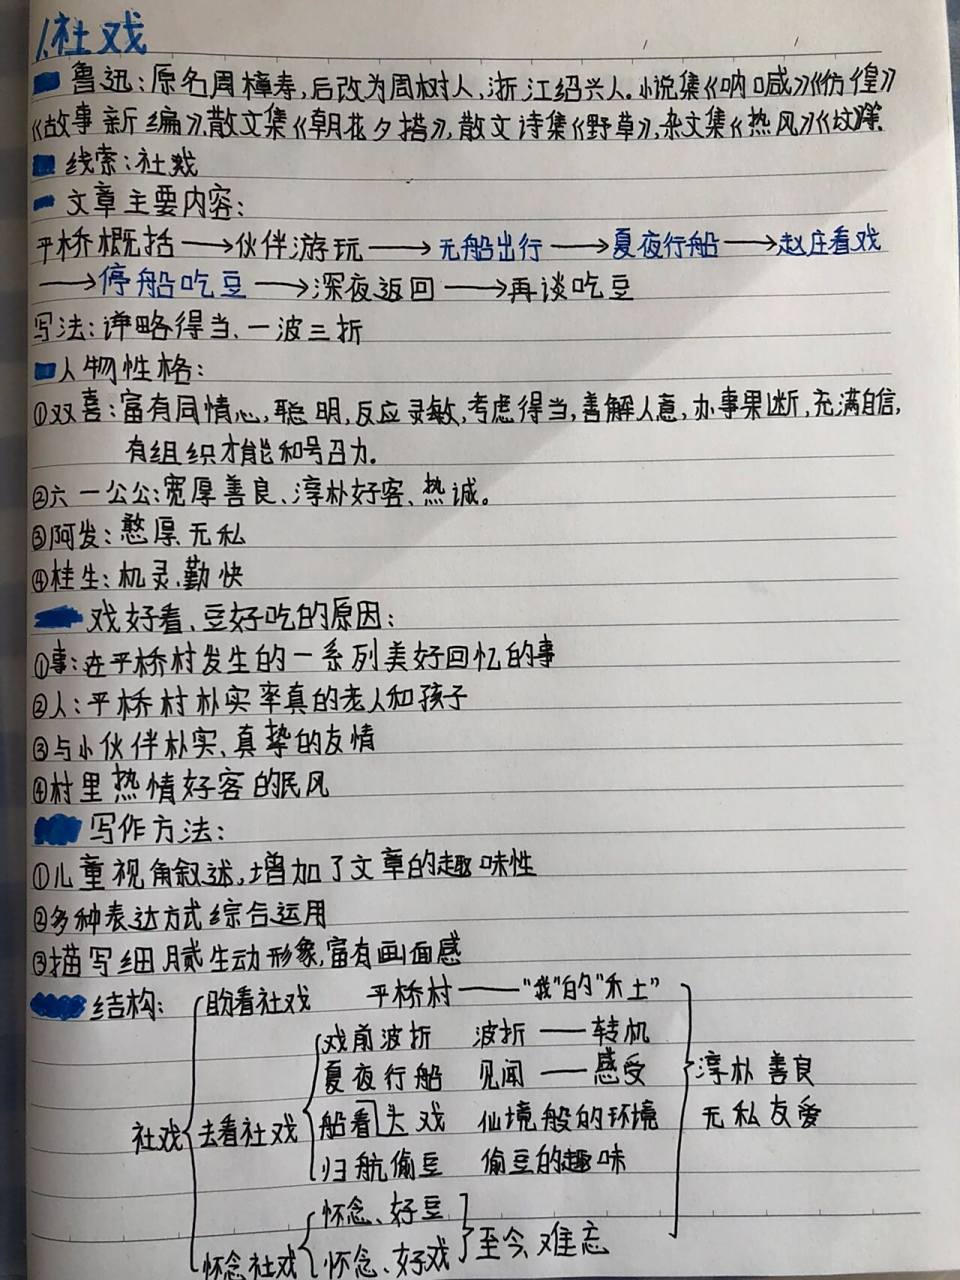 1.社戏
鲁迅:原名周樟寿,后改为周树人,浙江绍兴人.小说集《呐喊》《彷徨》
《故事新编》,散文集《朝花夕拾》,散文诗集《野草》,杂文集《热风》《坟》等.
线索:社戏
文章主要内容:
平桥概括→伙伴游玩→无船出行→夏夜行船→赵庄看戏
→停船吃豆→深夜返回→再谈吃豆
写法:详略得当、一波三折
人物性格:
①双喜:富有同情心,聪明,反应灵敏,考虑得当,善解人意,办事果断,充满自信,
有组织才能和号召力.
②六一公公:宽厚善良、淳朴好客、热诚。
③阿发:憨厚、无私
④桂生:机灵、勤快
戏好看、豆好吃的原因:
①事:在平桥村发生的一系列美好回忆的事
②人:平桥村朴实率真的老人和孩子
③与小伙伴朴实、真挚的友情
④村里热情好客的民风
写作方法:
①儿童视角叙述,增加了文章的趣味性
②多种表达方式综合运用
③描写细腻生动形象,富有画面感
结构:
盼看社戏 平桥村——"我"的"乐土"
戏前波折 波折——转机
夏夜行船 见闻——感受
淳朴善良
社戏 去看社戏 船头看戏 仙境般的环境
无私友爱
归航偷豆 偷豆的趣味
怀念、好豆
怀念社戏 怀念、好戏 至今难忘